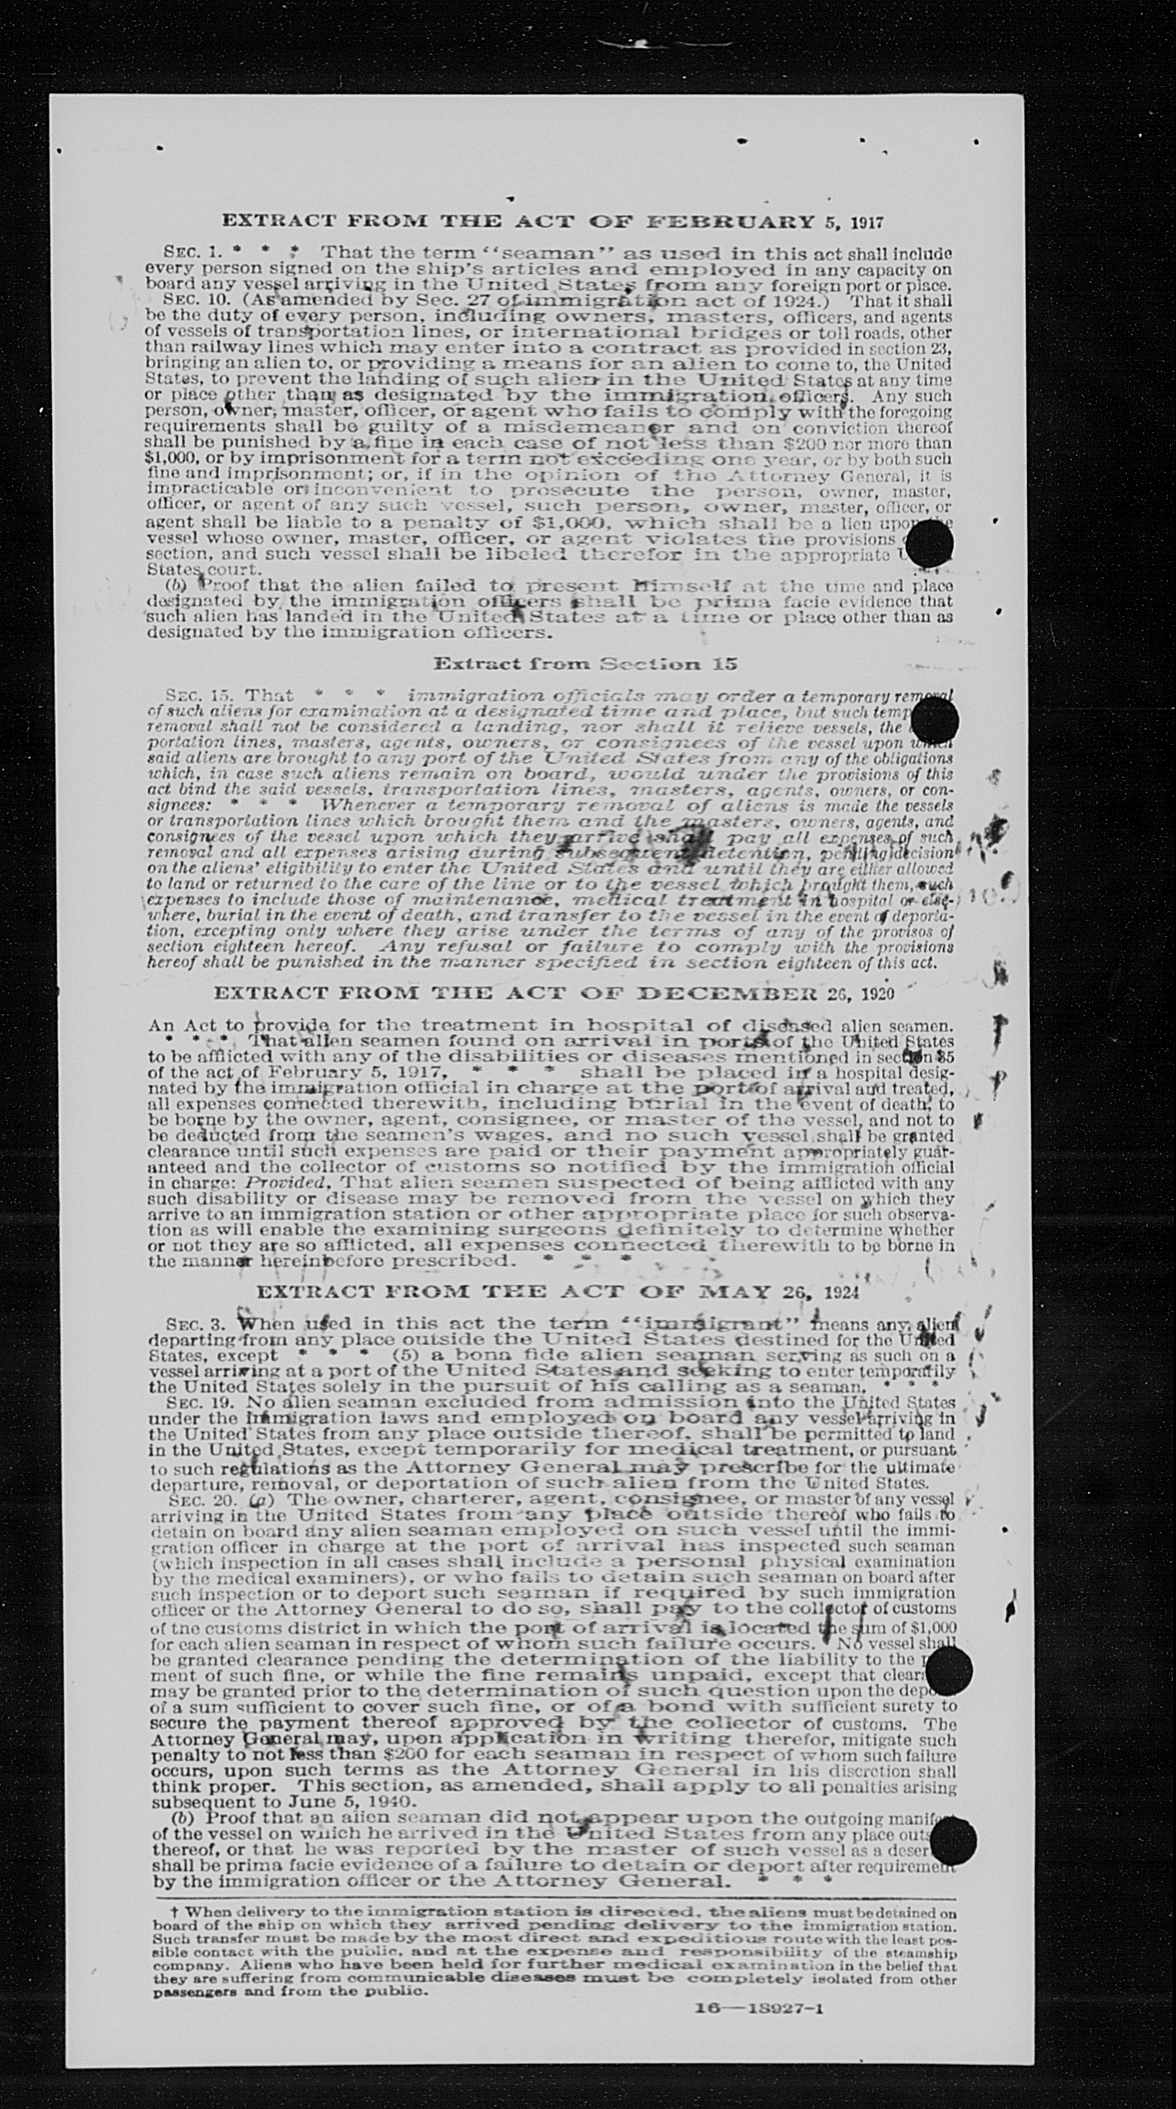 EXTRACT FROM THE ACT OF FEBRUARY 5, 1917
SEC. 1. * * * That the term "seaman" as used in this act shall include
every person signed on the ship's articles and employed in any capacity on
board any vessel arriving in the United States from any foreign port or place.
SEC. 10. (As amended by Sec. 27 of immigration act of 1924.) That it shall
be the duty of every person, including owners, masters, officers, and agents
of vessels of transportation lines, or international bridges or toll roads, other
than railway lines which may enter into a contract as provided in section 23,
bringing an alien to, or providing a means for an alien to come to, the United
States, to prevent the landing of such alien in the United States at any time
or place other than as designated by the immigration officers. Any such
person, owner, master, officer, or agent who fails to comply with the foregoing
requirements shall be guilty of a misdemeanor and on conviction thereof
shall be punished by a fine in each case of not less than $200 nor more than
$1,000, or by imprisonment for a term not exceeding one year, or by both such
fine and imprisonment; or, if in the opinion of the Attorney General, it is
impracticable or inconvenient to prosecute the person, owner, master,
officer, or agent of any such vessel, such person, owner, master, officer, or
agent shall be liable to a penalty of $1,000, which shall be a lien upon the
vessel whose owner, master, officer, or agent violates the provisions
section, and such vessel shall be libeled therefor in the appropriate
States court.
(b) Proof that the alien failed to present himself at the time and place
designated by the immigration officers shall be prima facie evidence that
such alien has landed in the United States at a time or place other than as
designated by the immigration officers.
Extract from Section 15
SEC. 15. That * * * immigration officials may order a temporary removal
of such aliens for examination at a designated time and place, but such temp
removal shall not be considered a landing, nor shall it relieve vessels, the
portation lines, masters, agents, owners, or consignees of the vessel upon which
said aliens are brought to any port of the United States from any of the obligations
which, in case such aliens remain on board, would under the provisions of this
act bind the said vessels, transportation lines, masters, agents, owners, or con-
signees: * * * Whenever a temporary removal of aliens is made the vessels
or transportation lines which brought them and the masters, owners, agents, and
consignees of the vessel upon which they arrive shall pay all expenses of such
removal and all expenses arising during subsequent detention, pending decision
on the aliens' eligibility to enter the United States and until they are either allowed
to land or returned to the care of the line or to the vessel which brought them, such
expenses to include those of maintenance, medical treatment in hospital or else-
where, burial in the event of death, and transfer to the vessel in the event of deporta-
tion, excepting only where they arise under the terms of any of the provisos of
section eighteen hereof. Any refusal or failure to comply with the provisions
hereof shall be punished in the manner specified in section eighteen of this act.
EXTRACT FROM THE ACT OF DECEMBER 26, 1920
An Act to provide for the treatment in hospital of diseased alien seamen.
* * * That alien seamen found on arrival in ports of the United States
to be afflicted with any of the disabilities or diseases mentioned in section 35
of the act of February 5, 1917, * * * shall be placed in a hospital desig-
nated by the immigration official in charge at the port of arrival and treated,
all expenses connected therewith, including burial in the event of death, to
be borne by the owner, agent, consignee, or master of the vessel, and not to
be deducted from the seamen's wages, and no such vessel shall be granted
clearance until such expenses are paid or their payment appropriately guar-
anteed and the collector of customs so notified by the immigration official
in charge: Provided, That alien seamen suspected of being afflicted with any
such disability or disease may be removed from the vessel on which they
arrive to an immigration station or other appropriate place for such observa-
tion as will enable the examining surgeons definitely to determine whether
or not they are so afflicted, all expenses connected therewith to be borne in
the manner hereinbefore prescribed. * * *
EXTRACT FROM THE ACT OF MAY 26, 1924
SEC. 3. When used in this act the term "immigrant" means any alien
departing from any place outside the United States destined for the United
States, except * * * (5) a bona fide alien seaman serving as such on a
vessel arriving at a port of the United States and seeking to enter temporarily
the United States solely in the pursuit of his calling as a seaman. * * *
SEC. 19. No alien seaman excluded from admission into the United States
under the immigration laws and employed on board any vessel arriving in
the United States from any place outside thereof, shall be permitted to land
in the United States, except temporarily for medical treatment, or pursuant
to such regulations as the Attorney General may prescribe for the ultimate
departure, removal, or deportation of such alien from the United States.
SEC. 20. (a) The owner, charterer, agent, consignee, or master of any vessel
arriving in the United States from any place outside thereof who fails to
detain on board any alien seaman employed on such vessel until the immi-
gration officer in charge at the port of arrival has inspected such seaman
(which inspection in all cases shall include a personal physical examination
by the medical examiners), or who fails to detain such seaman on board after
such inspection or to deport such seaman if required by such immigration
officer or the Attorney General to do so, shall pay to the collector of customs
of the customs district in which the port of arrival is located the sum of $1,000
for each alien seaman in respect of whom such failure occurs. No vessel shall
be granted clearance pending the determination of the liability to the
ment of such fine, or while the fine remains unpaid, except that clear
may be granted prior to the determination of such question upon the depo
of a sum sufficient to cover such fine, or of a bond with sufficient surety to
secure the payment thereof approved by the collector of customs. The
Attorney General may, upon application in writing therefor, mitigate such
penalty to not less than $200 for each seaman in respect of whom such failure
occurs, upon such terms as the Attorney General in his discretion shall
think proper. This section, as amended, shall apply to all penalties arising
subsequent to June 5, 1940.
(b) Proof that an alien seaman did not appear upon the outgoing manifest
of the vessel on which he arrived in the United States from any place outs
thereof, or that he was reported by the master of such vessel as a deser
shall be prima facie evidence of a failure to detain or deport after requirement
by the immigration officer or the Attorney General. * * *
† When delivery to the immigration station is directed, the aliens must be detained on
board of the ship on which they arrived pending delivery to the immigration station.
Such transfer must be made by the most direct and expeditious route with the least pos-
sible contact with the public, and at the expense and responsibility of the steamship
company. Aliens who have been held for further medical examination in the belief that
they are suffering from communicable diseases must be completely isolated from other
passengers and from the public.
16—18927-1